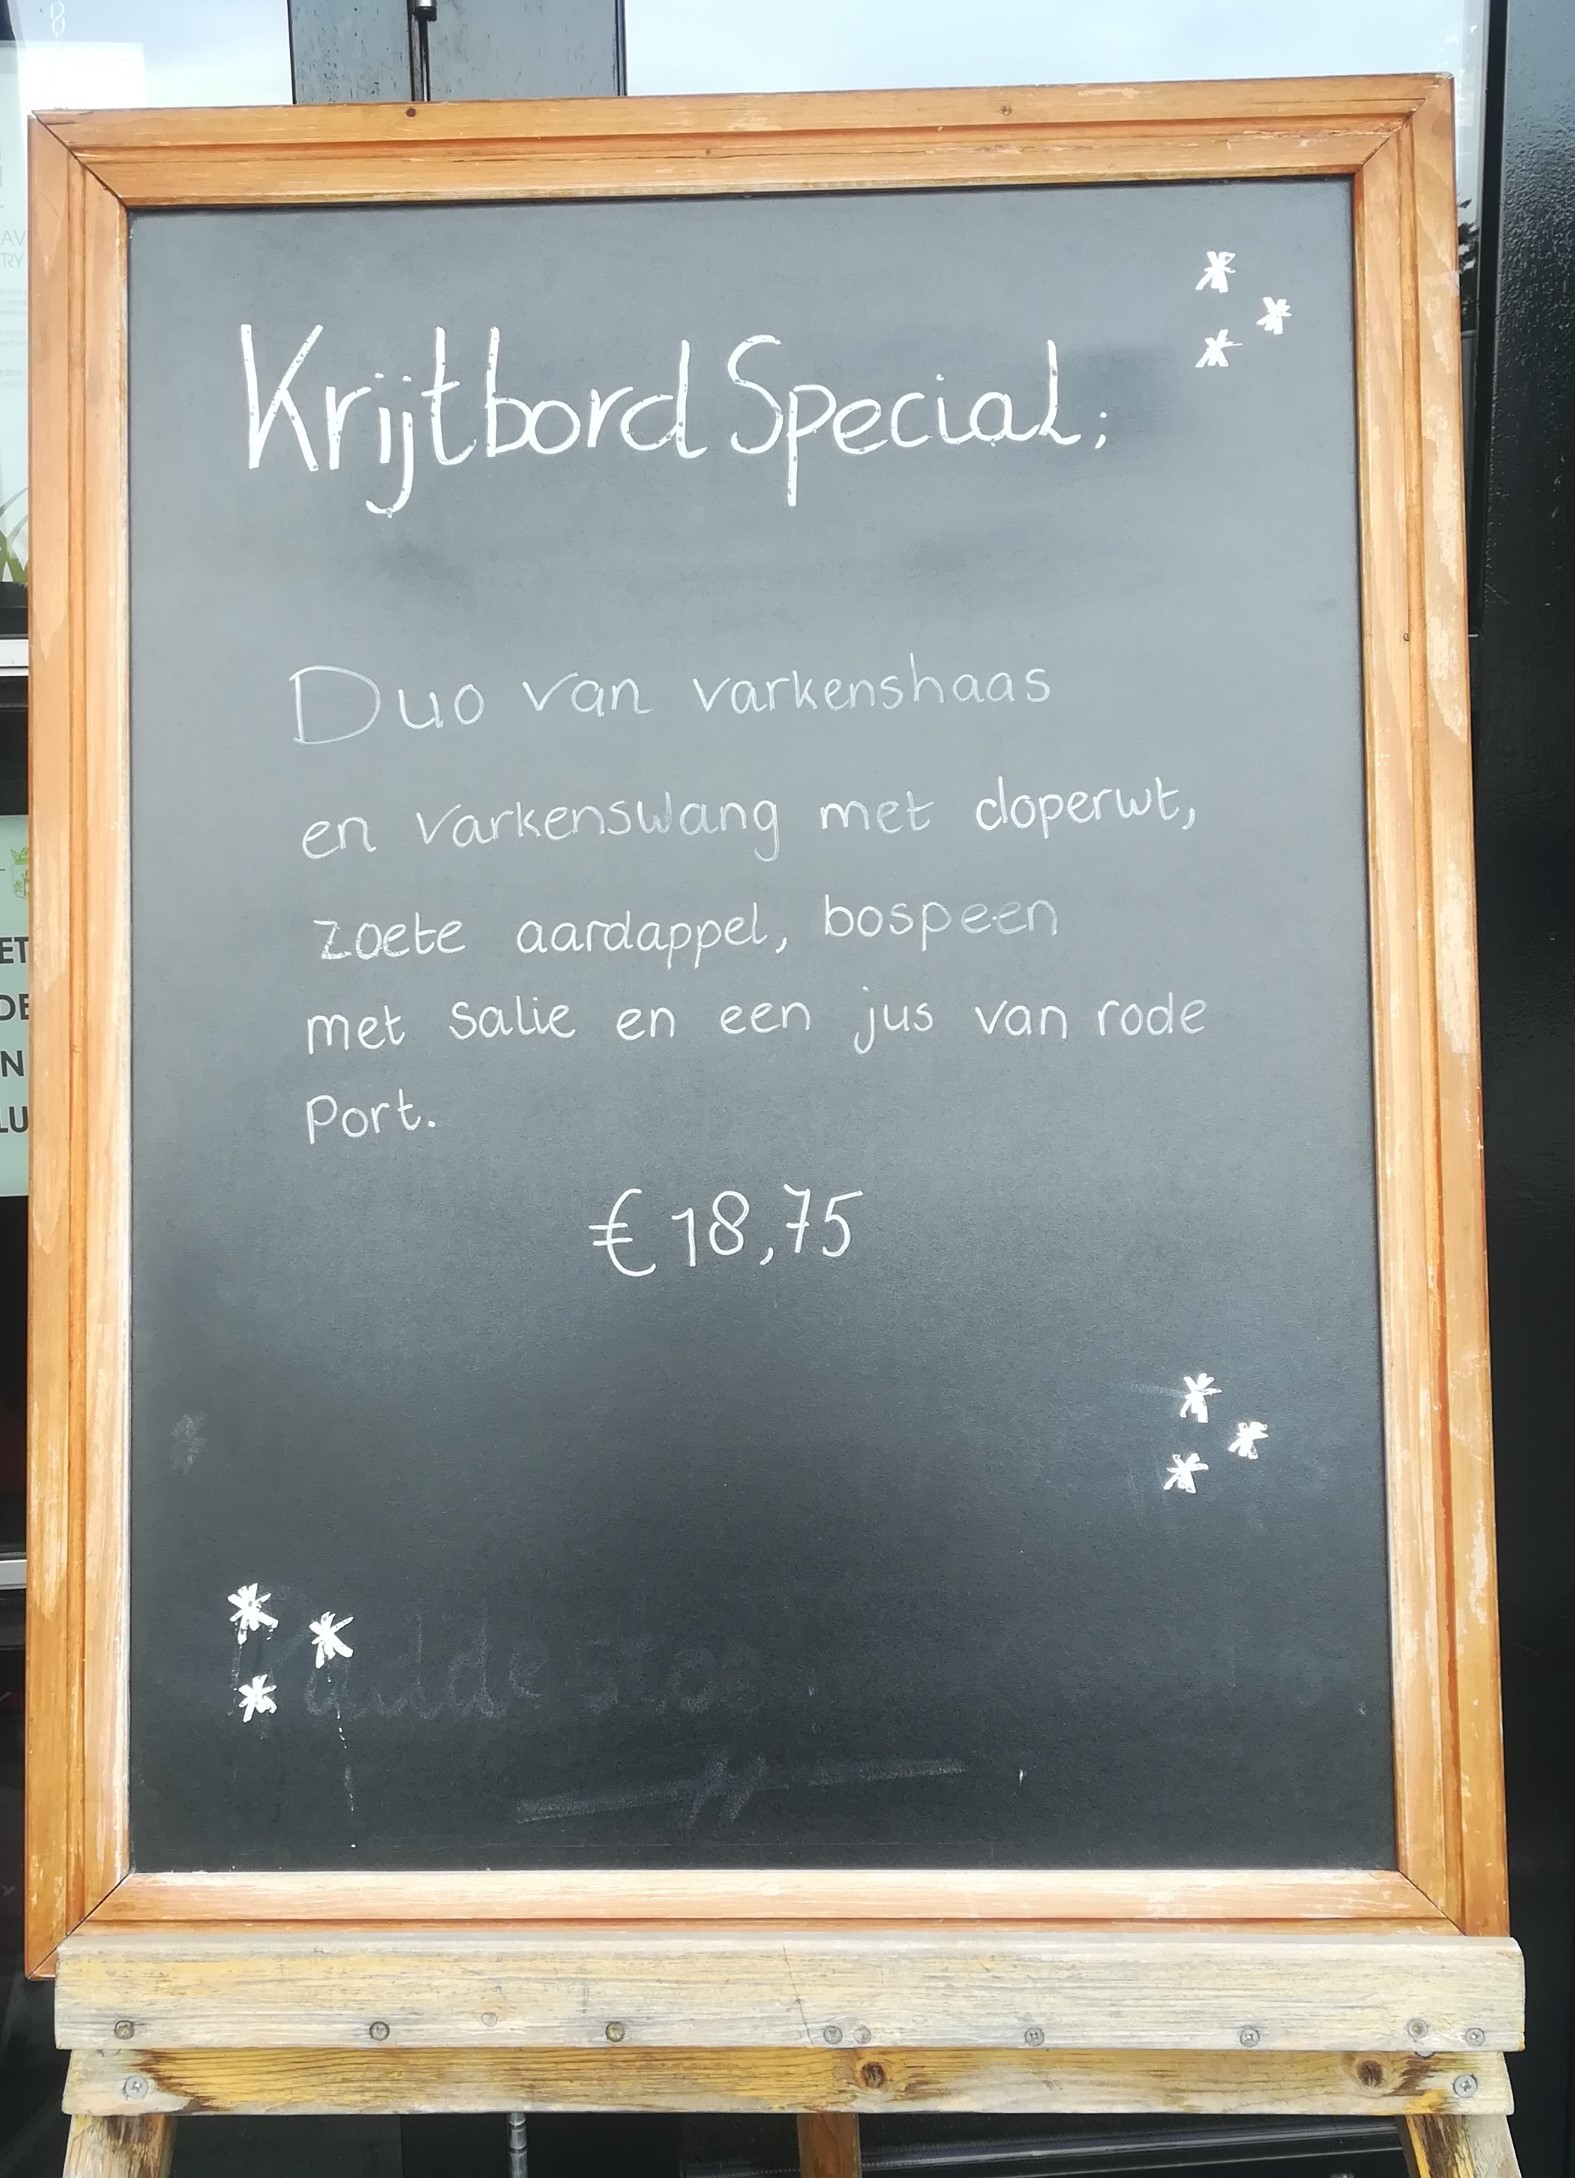 Krijtbord Special:
Duo van varkenshaas
en varkenswang met doperwt,
zoete aardappel, bospeen
met salie en een jus van rode
Port.
€ 18,75
AV
TRY
ET
DE
N
LU